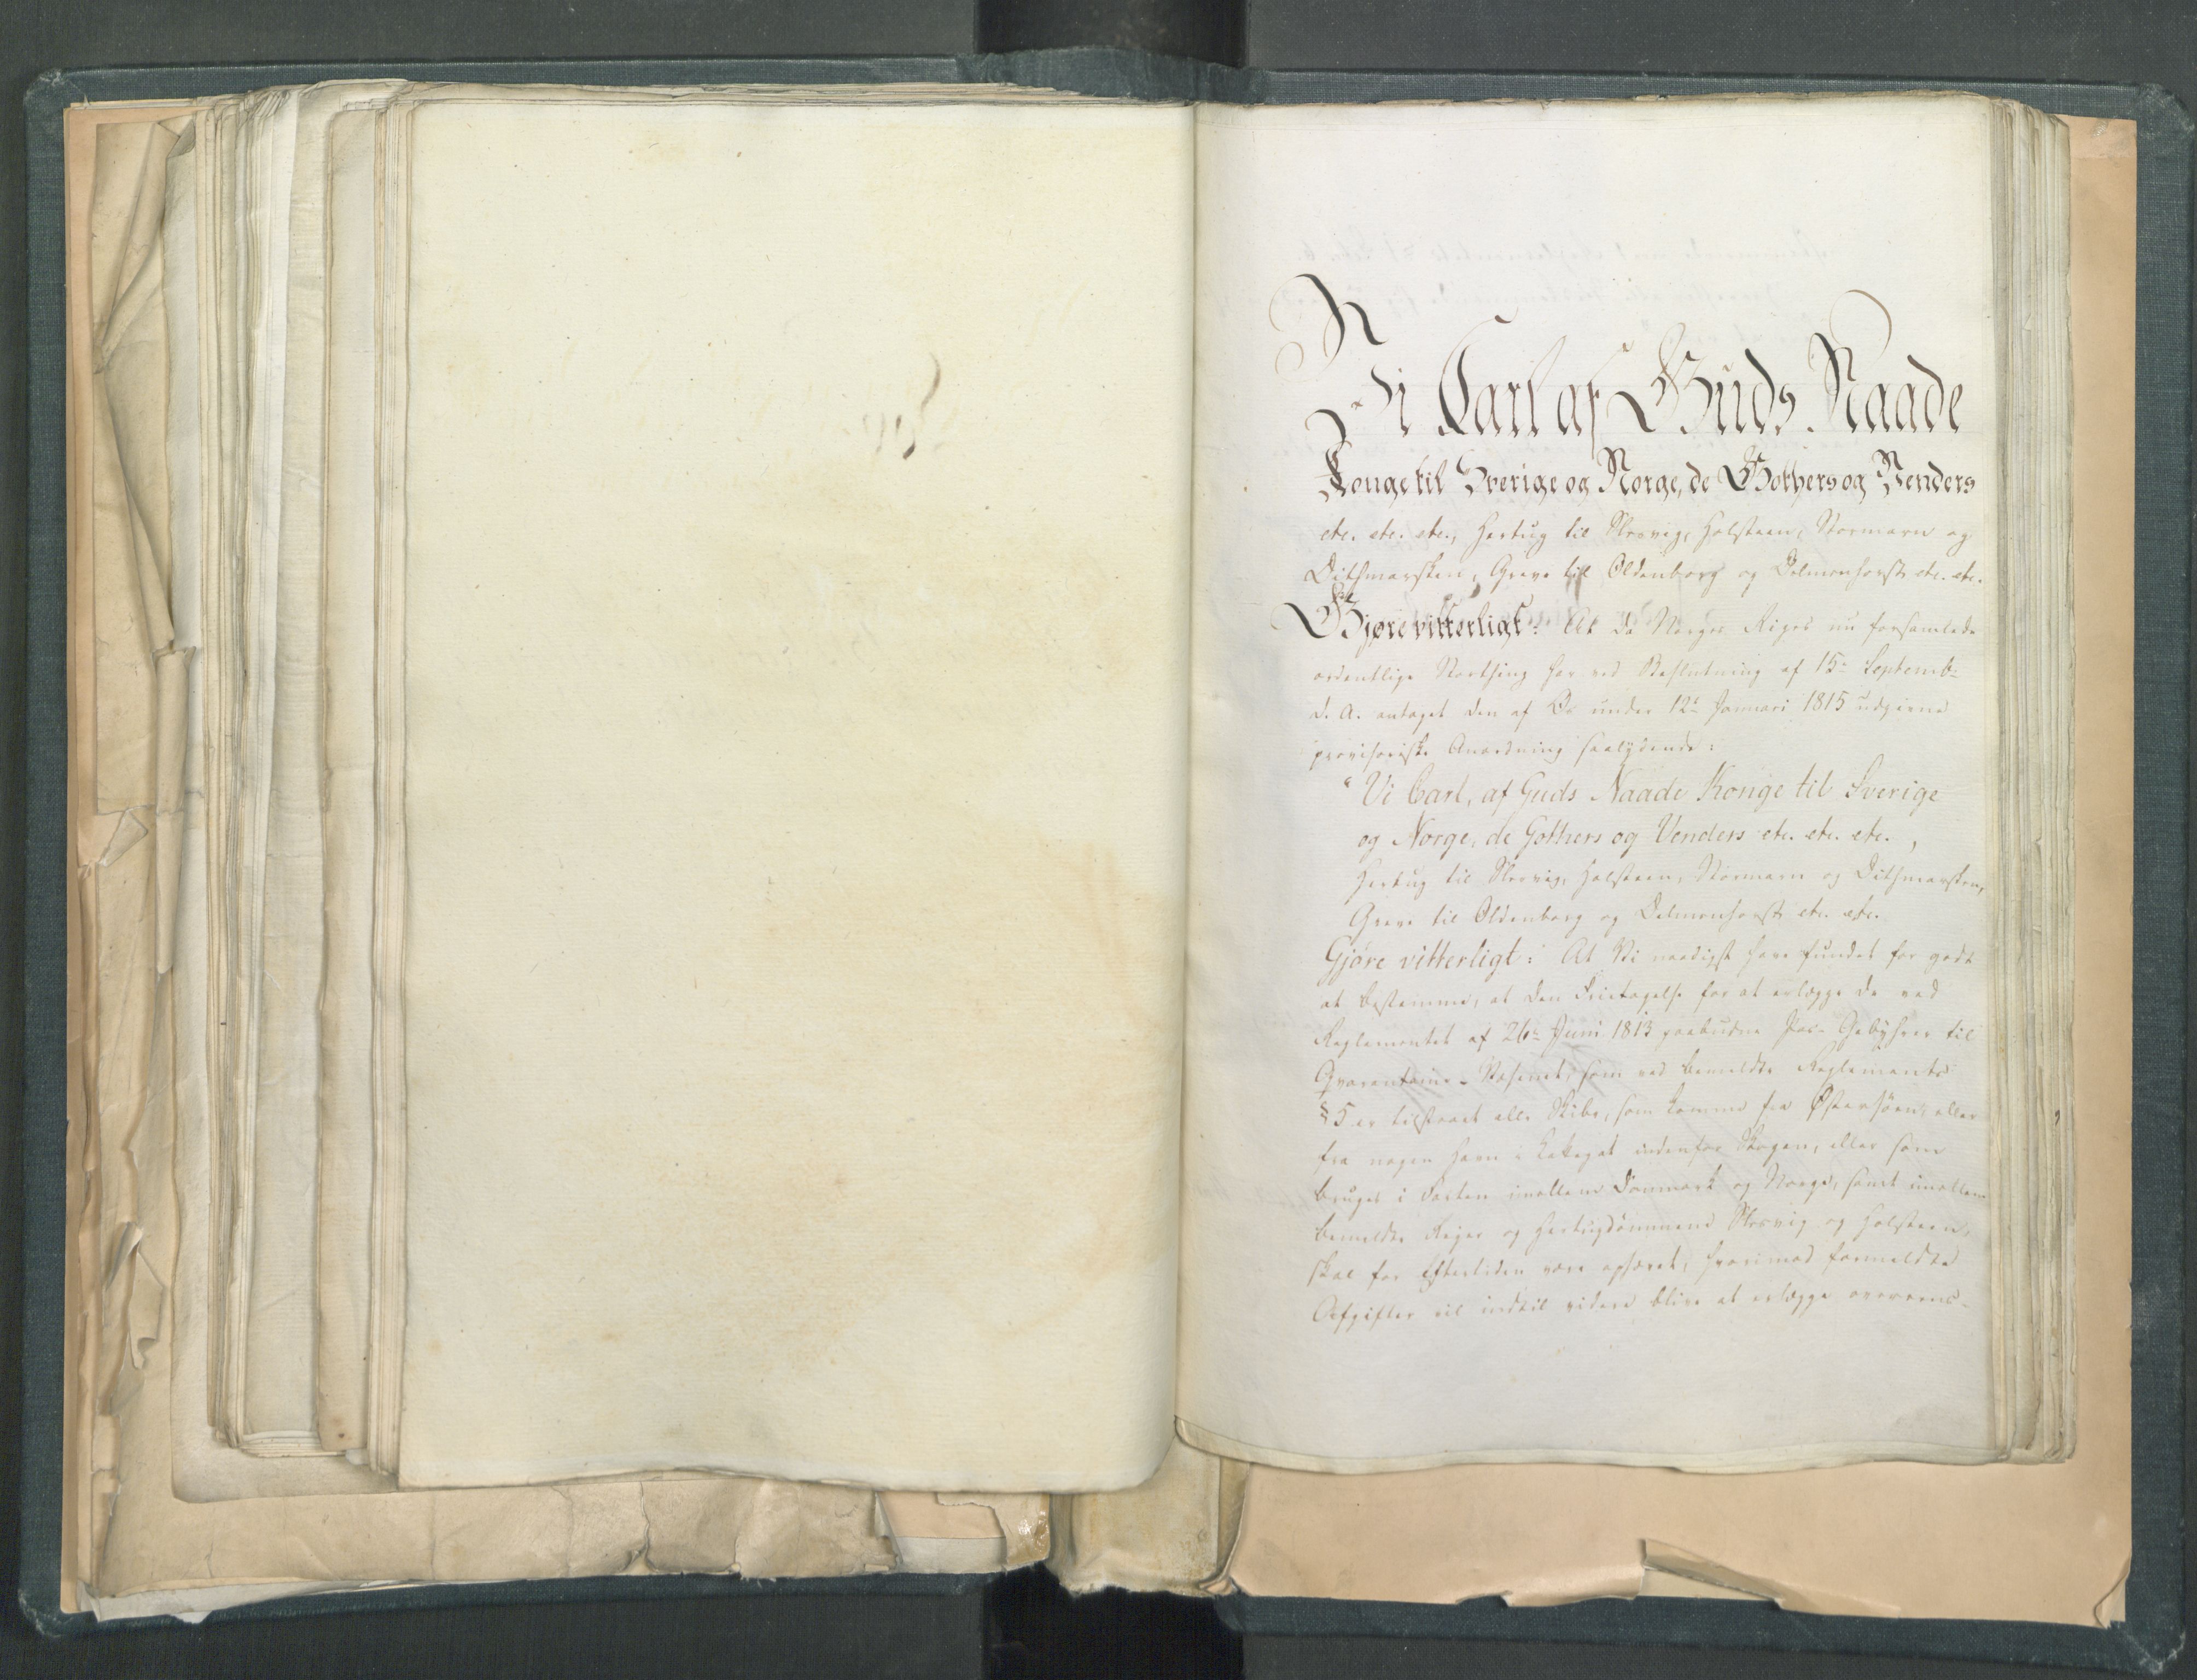 Vi Carl af Guds Naade
Konge til Sverige og Norge, de Gothers og Venders
etc. etc. etc., Hertug til Slesvig, Holsteen, Stormarn og
Dithmarsken, Greve til Oldenborg og Delmenhorst etc. etc.
Gjøre vitterligt: At da Norges Riges nu forsamlede
ordentlige Storthing har ved Beslutning af 15de Septemb:
d. A. antaget den af Os under 12te Januari 1815 udgivne
provisoriske Anordning saalydende:
"Vi Carl, af Guds Naade Konge til Sverige
og Norge, de Gothers og Venders etc. etc. etc.,
Hertug til Slesvig, Holsteen, Stormarn og Dithmarsken,
Greve til Oldenborg og Delmenhorst etc. etc.
Gjøre vitterligt: At Vi naadigst have fundet for godt
at bestemme, at den Fritagelse for at erlægge de ved
Reglementet af 26de Juni 1813 paabudne Gebyhrer til
Qvarantaine-Væsenet, som ved bemeldte Reglements
§5 er tilstaaet alle Skibe, som komme fra Østersöen, eller
fra nogen Havn i Kattegat indenfor Skagen, eller som
bruges i Farten imellem Danmark og Norge, samt imellem
bemeldte Riger og Hertugdömmene Slesvig og Holsteen,
skal for Eftertiden være ophævet, hvorimod formeldte
Afgifter vil indtil videre blive at erlægge overeens-